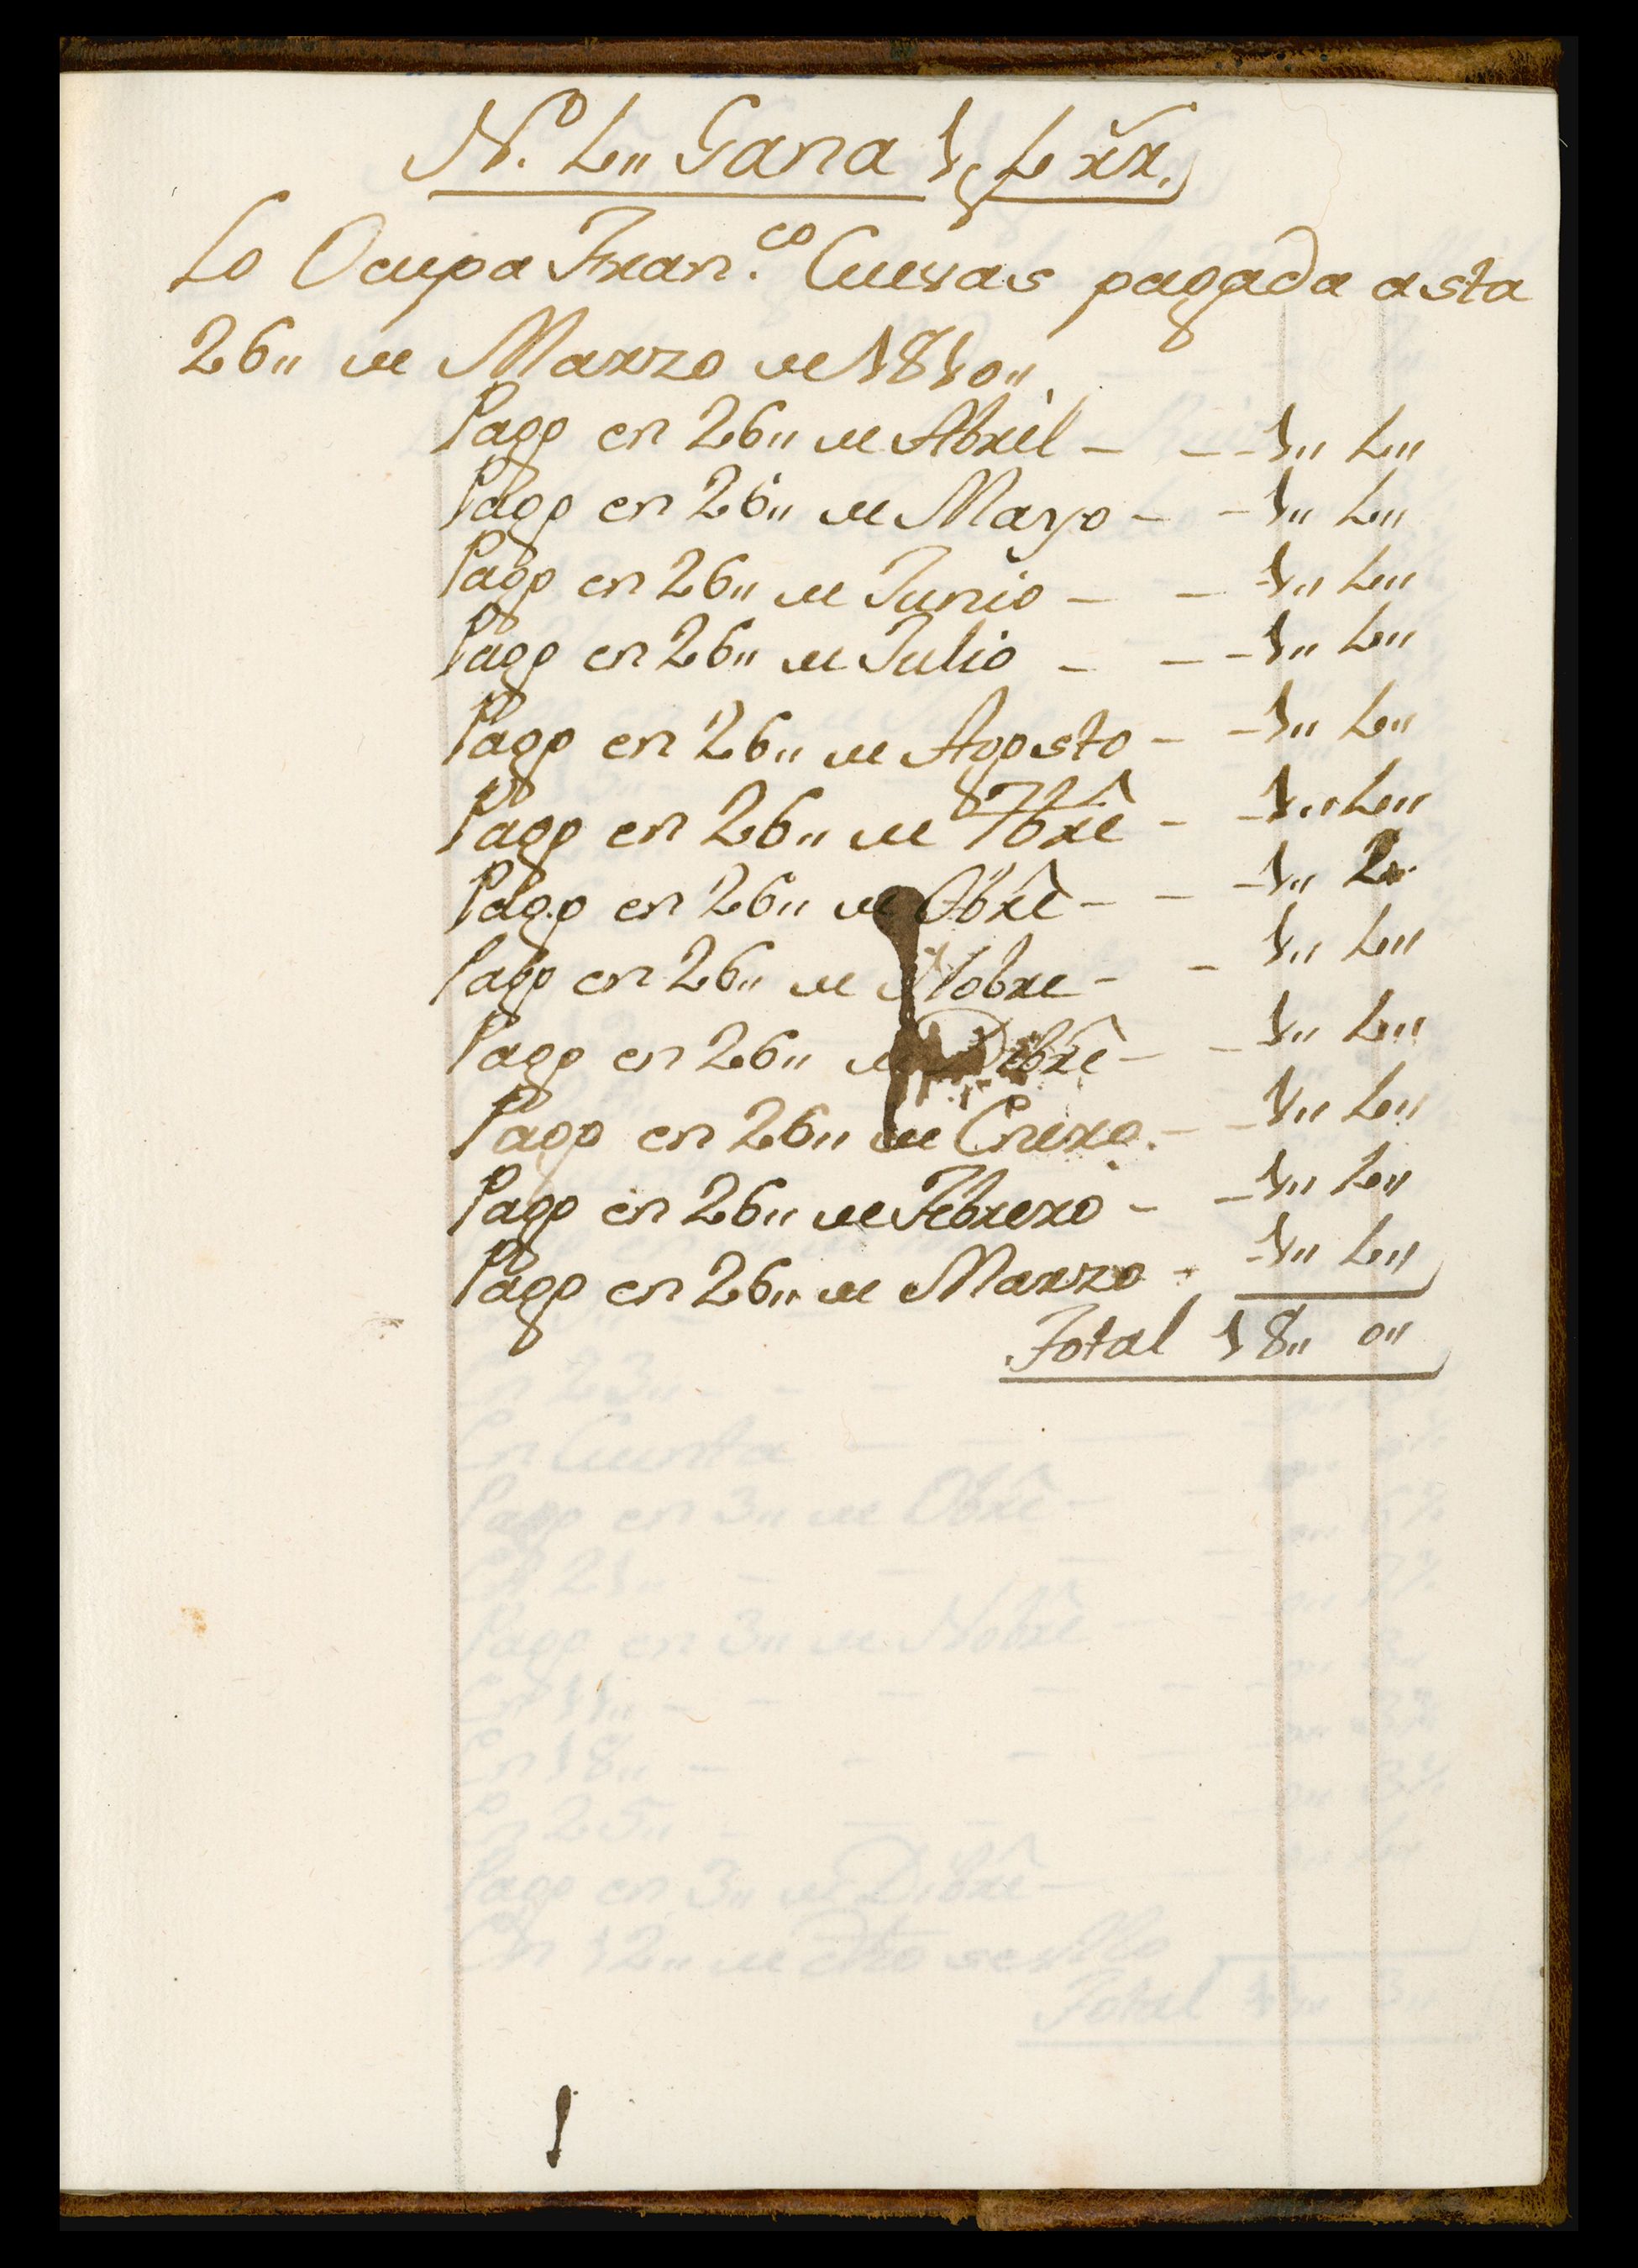 N.º 4,, Gana 1, p 4 rr.
Lo Ocupa Fran.co Cuevas pagada asta
26,, de Marzo de 1810,,
Pago en 26,, de Abril - - - 1,, 4,,
Pago en 26,, de Mayo - - 1,, 4,,
Pago en 26,, de Junio - - 1,, 4,,
Pago en 26,, de Julio - - - 1,, 4,,
Pago en 26,, de Agosto - - 1,, 4,,
Pago en 26,, de 7bre - - 1,, 4,,
Pago en 26,, de Obre - - - 1,, 4,,
Pago en 26,, de Nobre - - 1,, 4,,
Pago en 26,, de Dibre - - 1,, 4,,
Pago en 26,, de Enero - - 1,, 4,,
Pago en 26,, de Febrero - - 1,, 4,,
Pago en 26,, de Marzo - - 1,, 4,,
Total 18,, 0,,